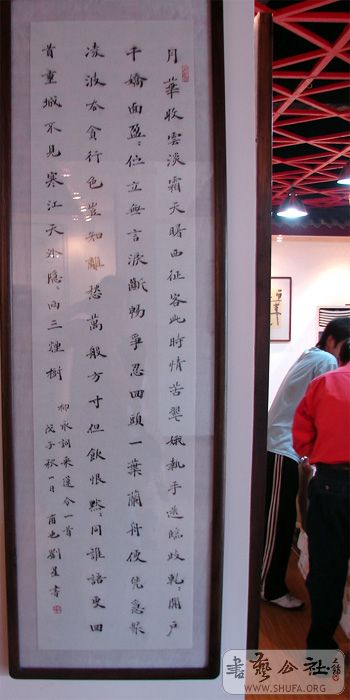 月華收雲淡霜天曙西征客此時情苦翠娥執手送臨歧軋〻開戶
千嬌面盈〻佇立無言淚斷腸爭忍回頭一葉蘭舟便凭急槳
凌波去貪行色豈知離愁萬般方寸但飲恨默〻同誰語更回
首重城不見寒江天外隱〻兩三煙樹
柳永詞采蓮令一首
戊子秋一日 甫也劉星書
書藝公社
WWW.SHUFA.ORG